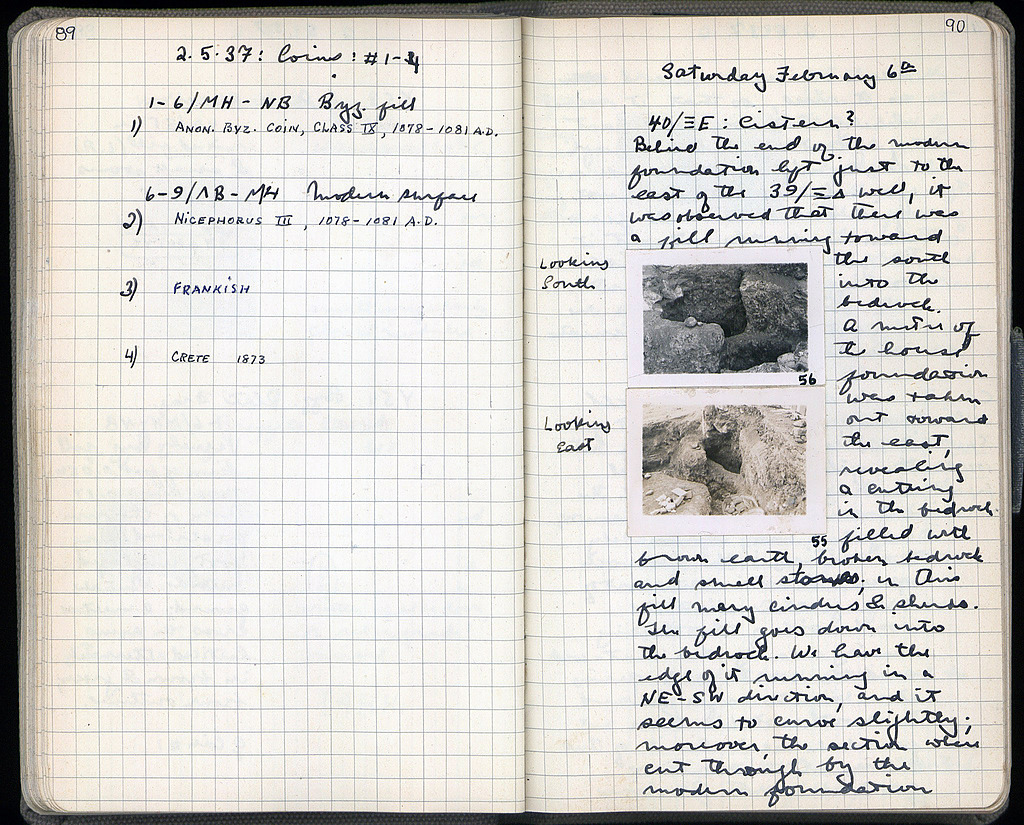 89
2.5.37: Coins: #1-4
1-6/MH - NB Byz. fill
1) ANON. BYZ. COIN, CLASS IX, 1078-1081 A.D.
6-9/ΛB - MH Modern surface
2) NICEPHORUS III, 1078-1081 A.D.
3) FRANKISH
4) CRETE 1873
90
Saturday February 6th
40/ΞE: Cistern?
Behind the end of the modern
foundation left just to the
east of the 39/ΞΔ well, it
was observed that there was
a fill running toward
the south
into the
bedrock.
A metre of
the house
foundation
was taken
out toward
the east,
revealing
a cutting
in the bedrock
filled with
Looking
South
56
Looking
East
55
brown earth, broken bedrock
and small stones; in this
fill many cinders & sherds.
The fill goes down into
the bedrock. We have the
edge of it running in a
NE-SW direction, and it
seems to curve slightly;
moreover, the section where
cut through by the
modern foundation